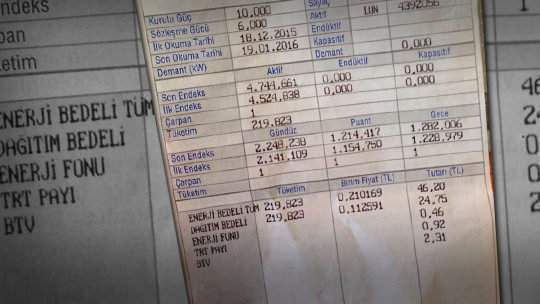 Kurulu Güç 10,000 Sayaç LUN 4392056
Sözleşme Gücü 6,000 Aktif
İlk Okuma Tarihi 18.12.2015 Endüktif
Son Okuma Tarihi 19.01.2016 Kapasitif
Demant (kW) Demant 0,000
Aktif Endüktif Kapasitif
Son Endeks 4.744,661 0,000 0,000
İlk Endeks 4.524,838 0,000 0,000
Çarpan 1
Tüketim 219,823
Gündüz Puant Gece
Son Endeks 2.248,238 1.214,417 1.282,006
İlk Endeks 2.141,109 1.154,750 1.228,979
Çarpan 1 1 1
Tüketim
Tüketim Birim Fiyat (TL) Tutarı (TL)
ENERJİ BEDELİ TÜM 219,823 0,210169 46,20
DAGITIM BEDELİ 219,823 0,112591 24,75
ENERJİ FONU 0,46
TRT PAYI 0,92
BTV 2,31